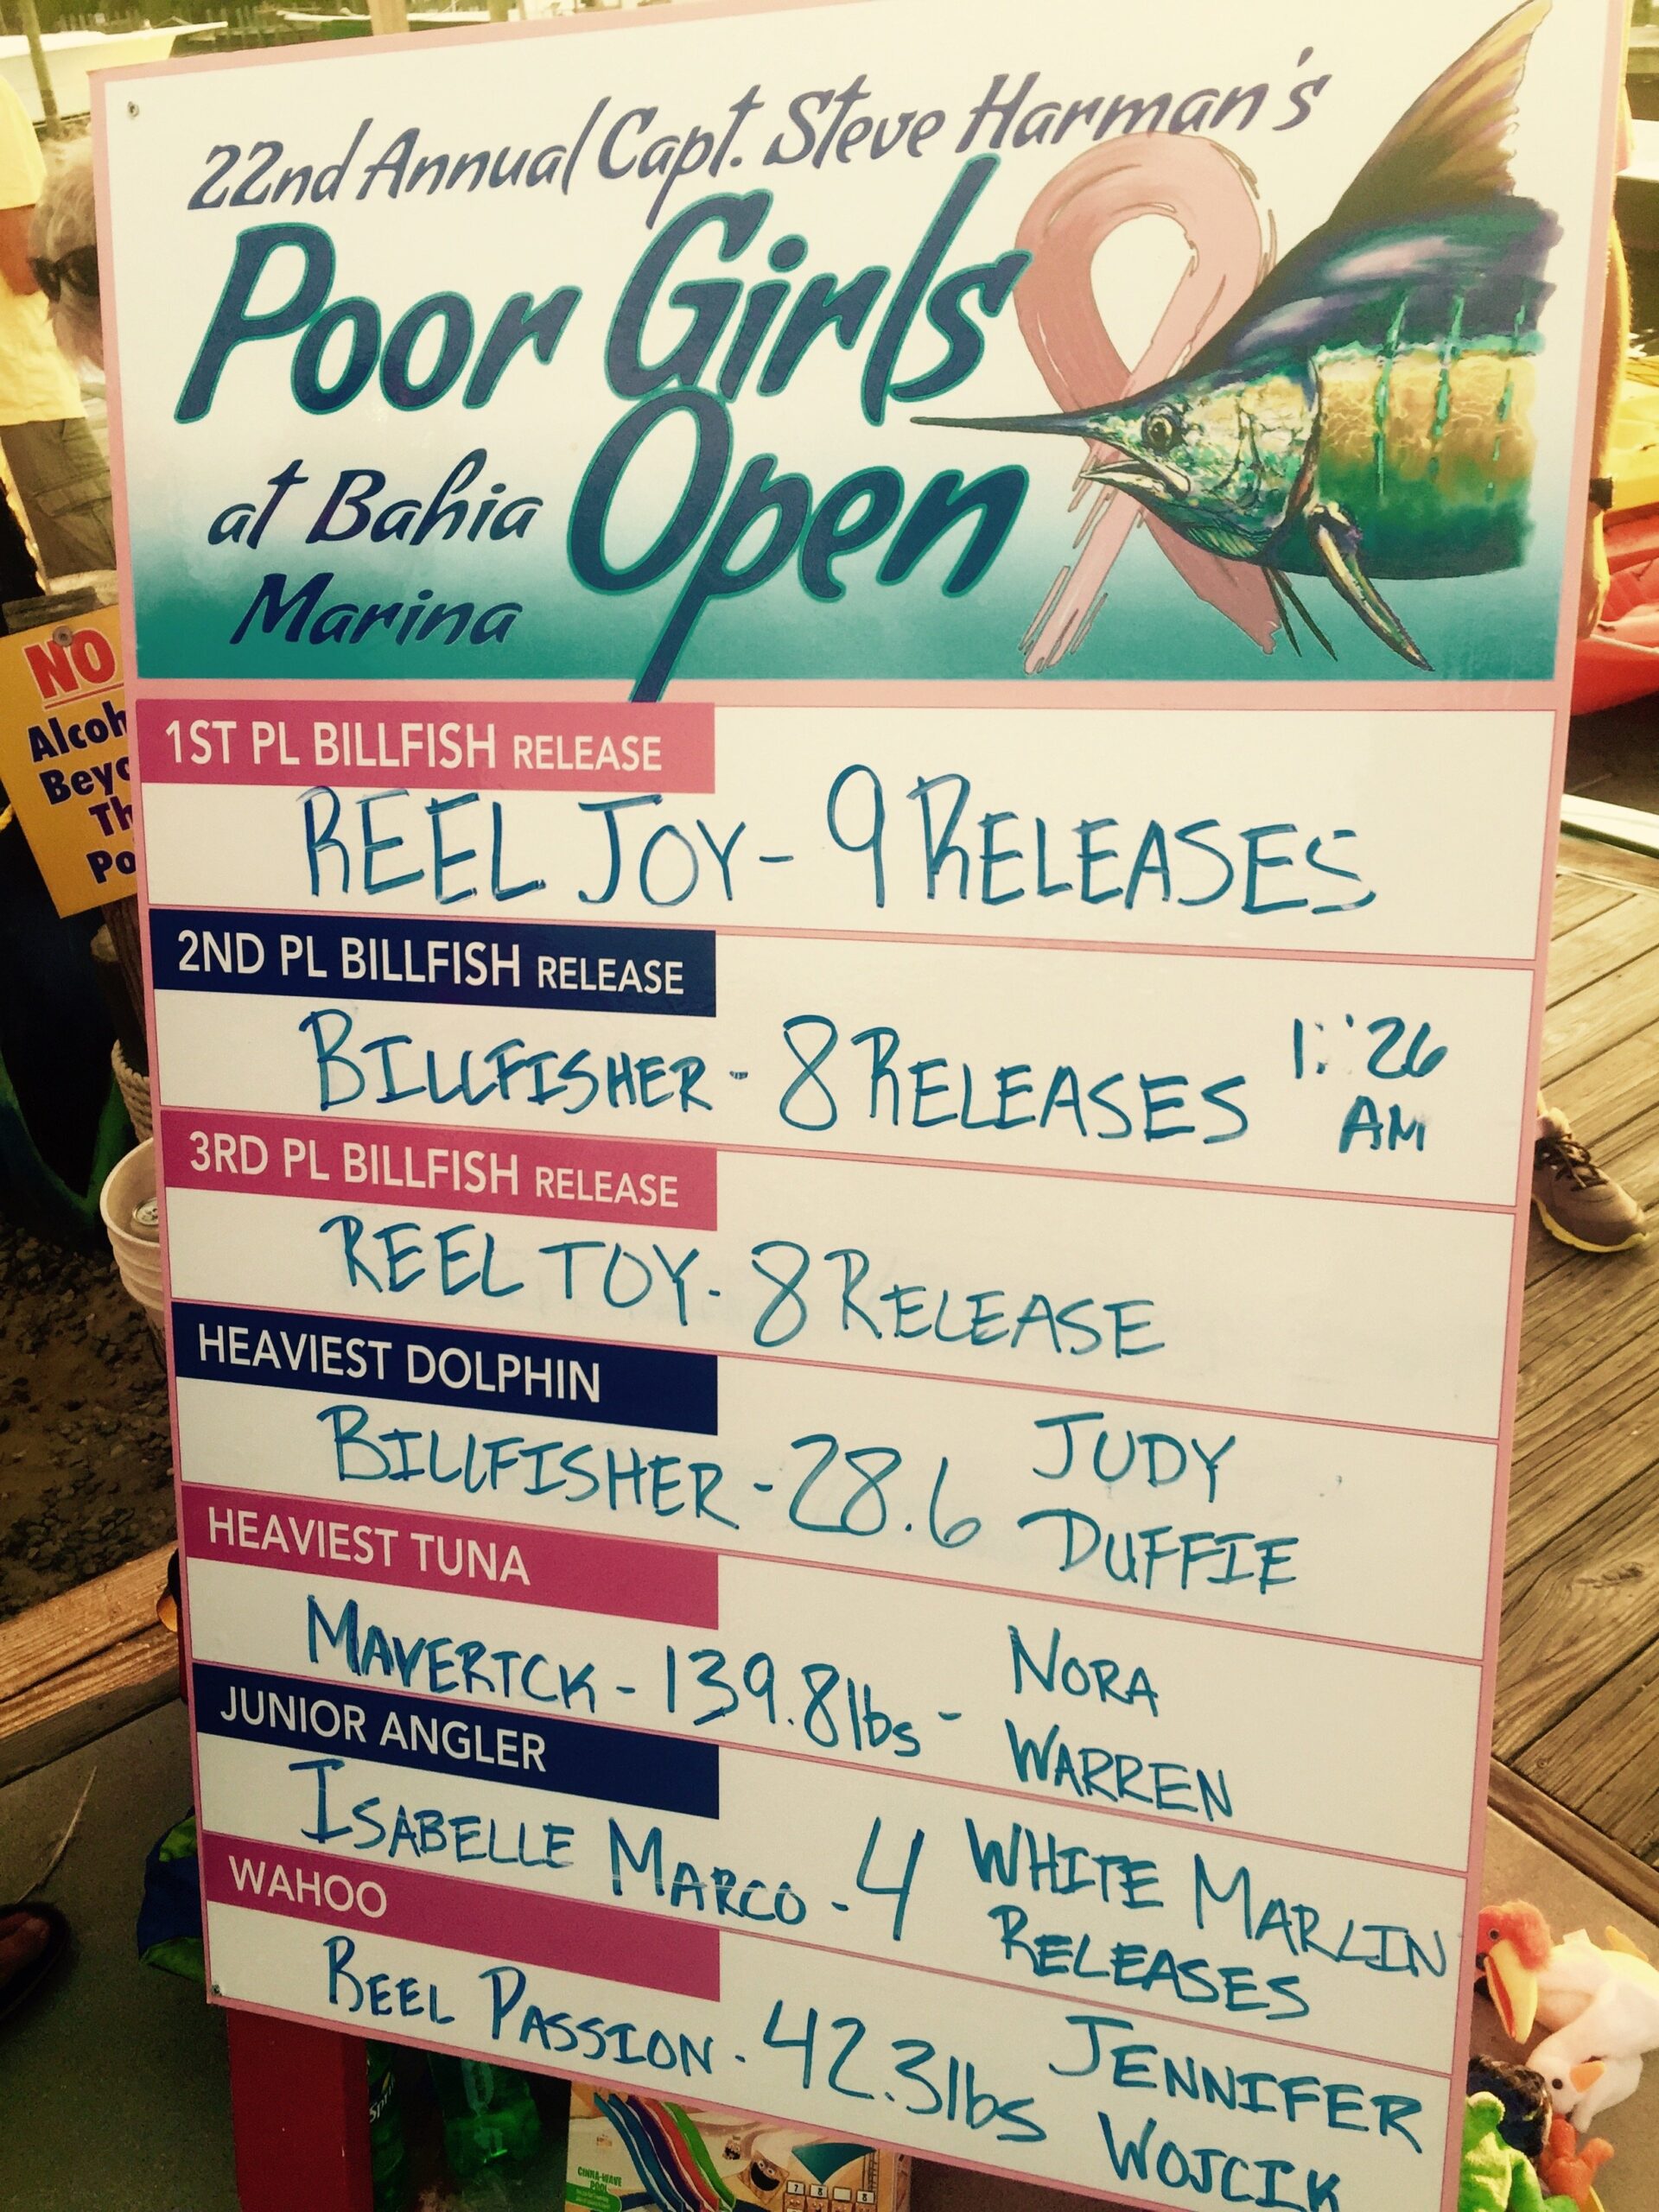 22nd Annual Capt. Steve Harman's
Poor Girls
Open
at Bahia
Marina
NO
Alcoh
Beyo
Th
Po
1ST PL BILLFISH RELEASE
REEL JOY - 9 RELEASES
2ND PL BILLFISH RELEASE
BILLFISHER - 8 RELEASES 1:26
AM
3RD PL BILLFISH RELEASE
REEL TOY - 8 RELEASE
HEAVIEST DOLPHIN
BILLFISHER - 28.6 JUDY
DUFFIE
HEAVIEST TUNA
MAVERICK - 139.8 lbs - NORA
WARREN
JUNIOR ANGLER
ISABELLE MARCO - 4 WHITE MARLIN
RELEASES
WAHOO
REEL PASSION - 42.3 lbs JENNIFER
WOJCIK
Sprite